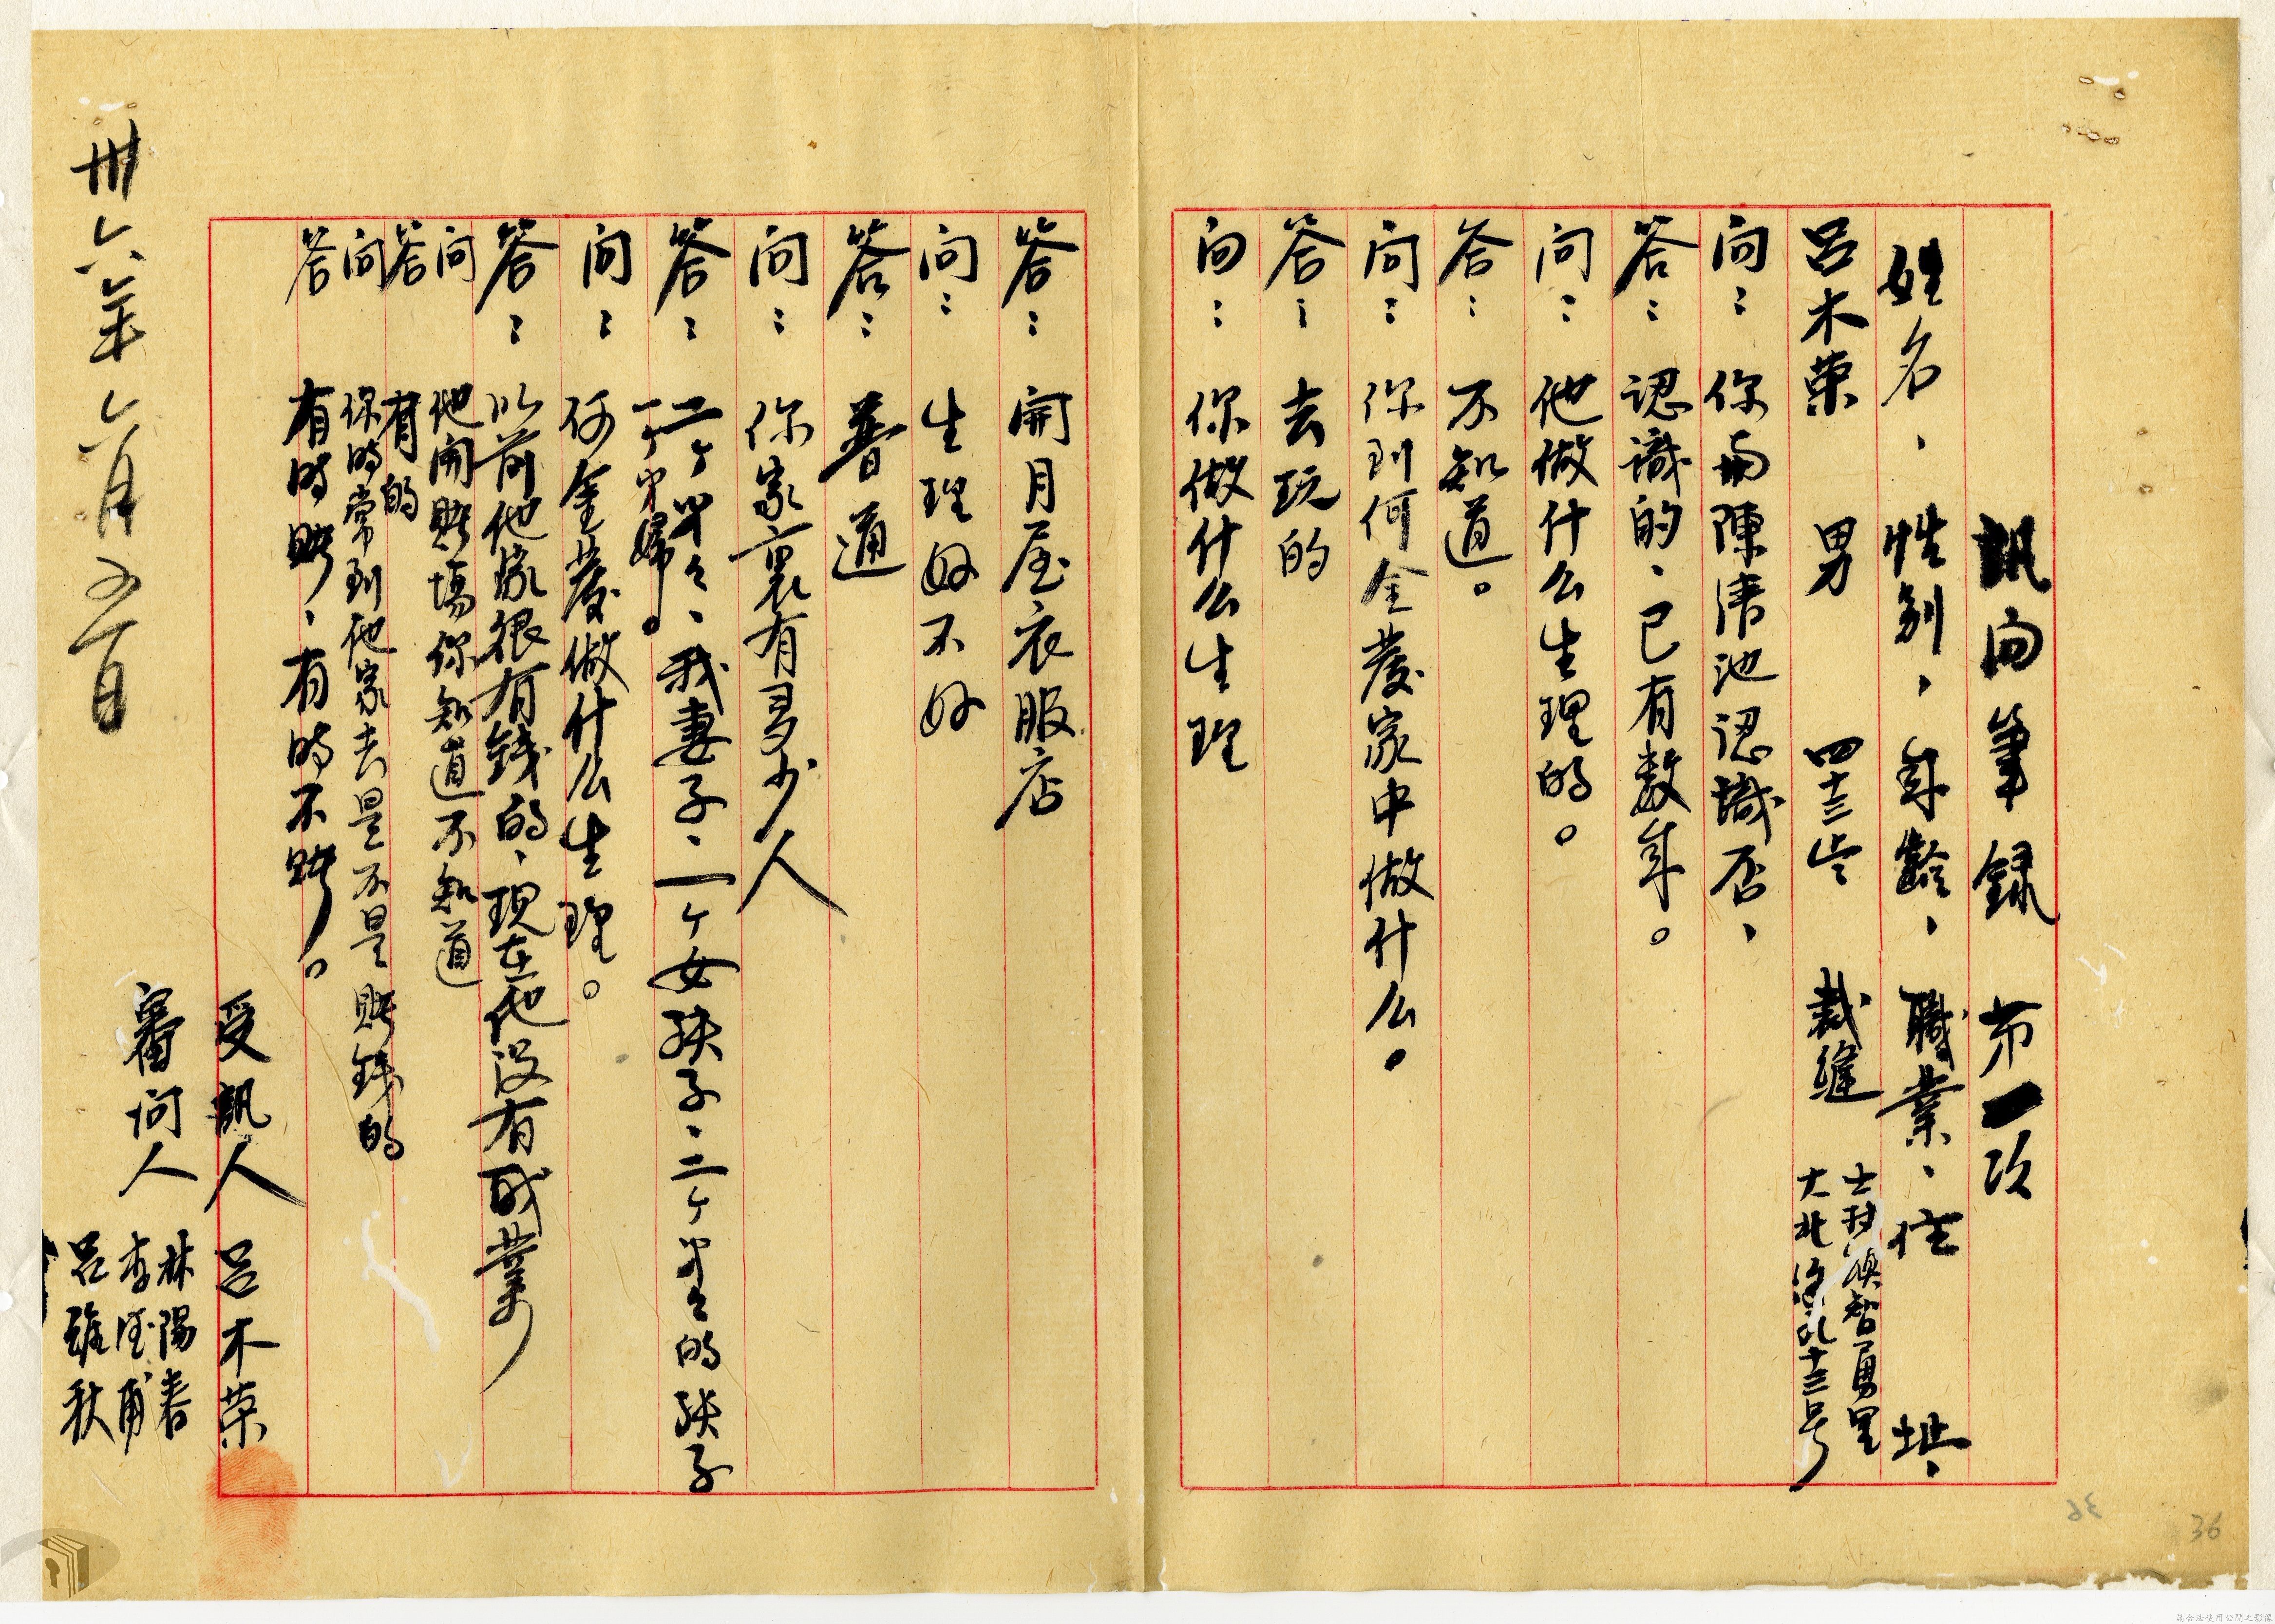 訊问筆録 第一次
姓名、性别、年齡、職業、住址、
呂木荣 男 四十三岁 裁縫
士林鎮智勇里
大北路八十三号
问： 你與陳清池認識否、
答： 認識的、已有数年。
问： 他做什么生理的。
答： 不知道。
问： 你到何金發家中做什么。
答： 去玩的
问： 你做什么生理
答： 開月屋衣服店
问： 生理好不好
答： 普通
问： 你家裏有多少人
答： 二个弟々、我妻子、一个女孩子、二个弟々的孩子
一个弟婦。
问： 何金發做什么生理。
答： 以前他家很有錢的、現在他没有職業
问 他開賭場你知道不知道
答 有的
问 你時常到他家去是不是賭錢的
答 有時賭、有時不賭。
受訊人 呂木荣
審问人 林陽春
李
呂雖秋
卅六年六月五日
36
請合法使用公開之影像